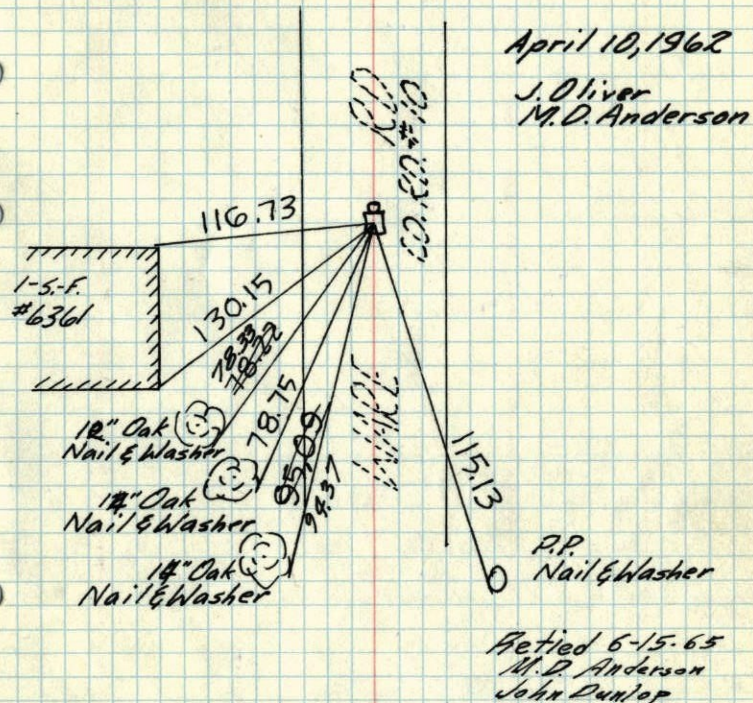 April 10, 1962
J. Oliver
M.D. Anderson
RD
CO. RD. #10
WARE
116.73
1-S.-F.
#6361
130.15
78.33
78.22
78.75
95.09
94.37
115.13
12" Oak
Nail & Washer
14" Oak
Nail & Washer
14" Oak
Nail & Washer
P.P.
Nail & Washer
Retied 6-15-65
M.D. Anderson
John Dunlop